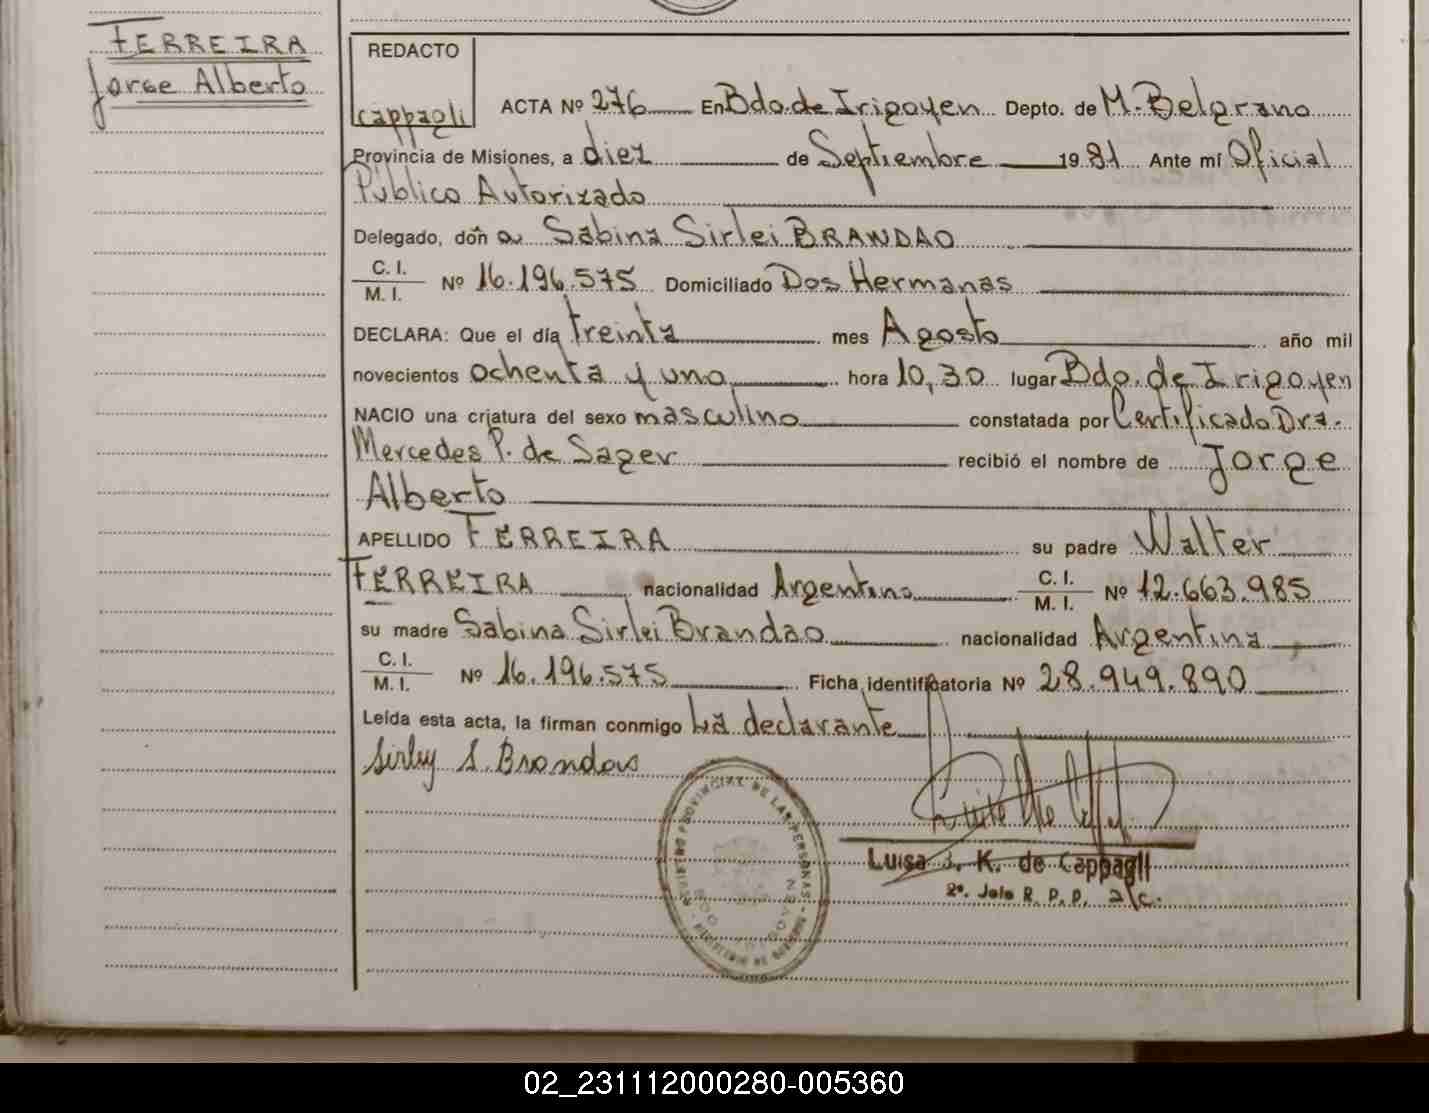 FERREIRA
Jorge Alberto
REDACTO
cappagli
ACTA Nº 276 En Bdo. de Irigoyen Depto. de M. Belgrano
Provincia de Misiones, a diez de Septiembre 19 81 Ante mí Oficial
Público Autorizado
Delegado, don a Sabina Sirlei BRANDAO
C. I.
M. I. Nº 16.196.575 Domiciliado Dos Hermanas
DECLARA: Que el día treinta mes Agosto año mil
novecientos ochenta y uno hora 10,30 lugar Bdo. de Irigoyen
NACIO una criatura del sexo masculino constatada por Certificado Dra.
Mercedes P. de Sager recibió el nombre de Jorge
Alberto
APELLIDO FERREIRA su padre Walter
FERREIRA nacionalidad Argentino C. I.
M. I. Nº 12.663.985
su madre Sabina Sirlei Brandao nacionalidad Argentina
C. I.
M. I. Nº 16.196.575 Ficha identificatoria Nº 28.949.890
Leída esta acta, la firman conmigo La declarante
Sirley S. Brandao
REGISTRO PROVINCIAL DE LAS PERSONAS
MINISTERIO DE GOBIERNO
Luisa J. K. de Cappagli
2º. Jefe R. P. P. a/c.
02_231112000280-005360